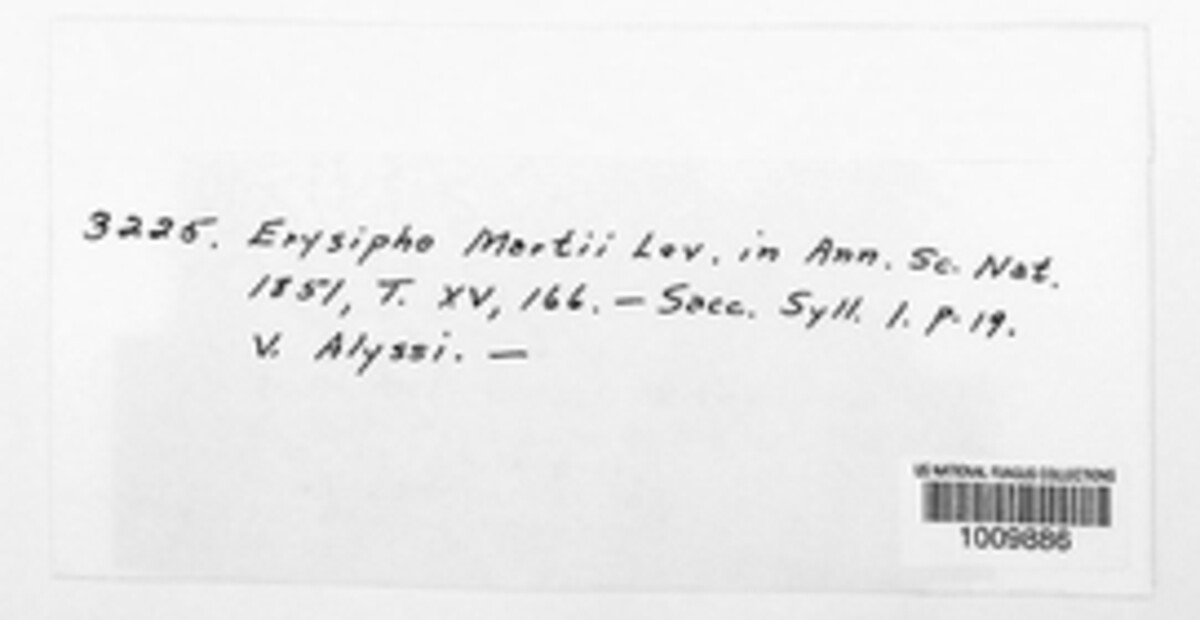 3225. Erysiphe Martii Lev. in Ann. Sc. Nat.
1851, T. XV, 166. — Sacc. Syll. 1. p. 19.
V. Alyssi. —
US NATIONAL FUNGUS COLLECTIONS
1009886